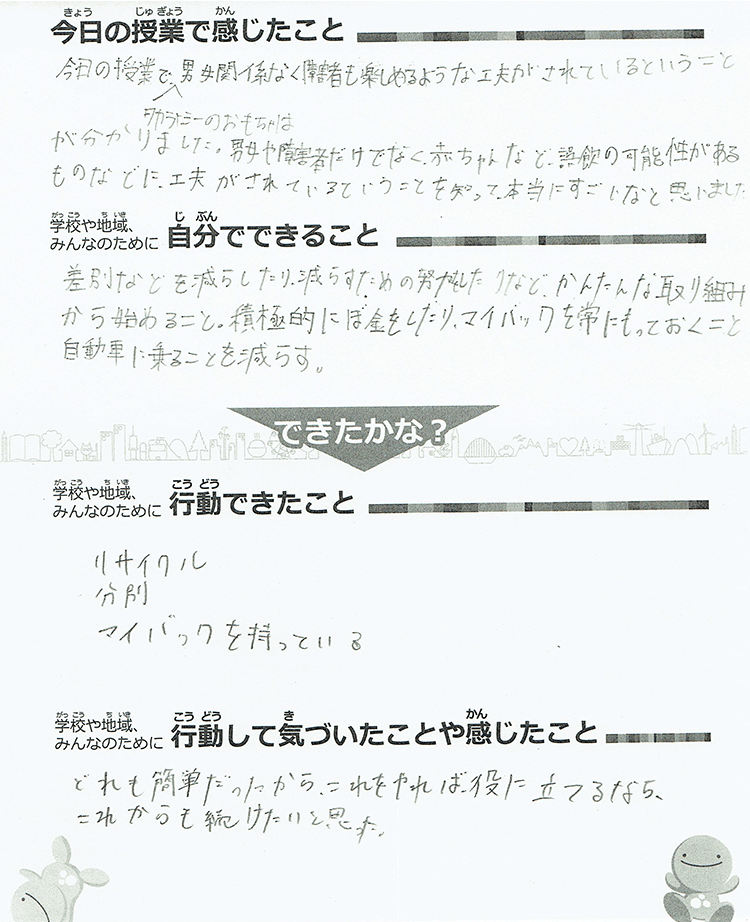 今日の授業で感じたこと
今日の授業で、男女関係なく障害者も楽しめるような工夫がされているということ
タカラトミーのおもちゃは
が分かりました。男女や障害者だけでなく、赤ちゃんなど、誤飲の可能性がある
ものなどに、工夫がされているということを知って、本当にすごいなと思いました
学校や地域、
みんなのために 自分でできること
差別などを減らしたり、減らすための努力をしたりなど、かんたんな取り組み
から始めること。積極的にぼ金をしたり、マイバックを常にもっておくこと
自動車に乗ることを減らす。
できたかな?
学校や地域、
みんなのために 行動できたこと
リサイクル
分別
マイバックを持っている
学校や地域、
みんなのために 行動して気づいたことや感じたこと
どれも簡単だったから、これをやれば、役に立てるなら、
これからも続けたいと思った。